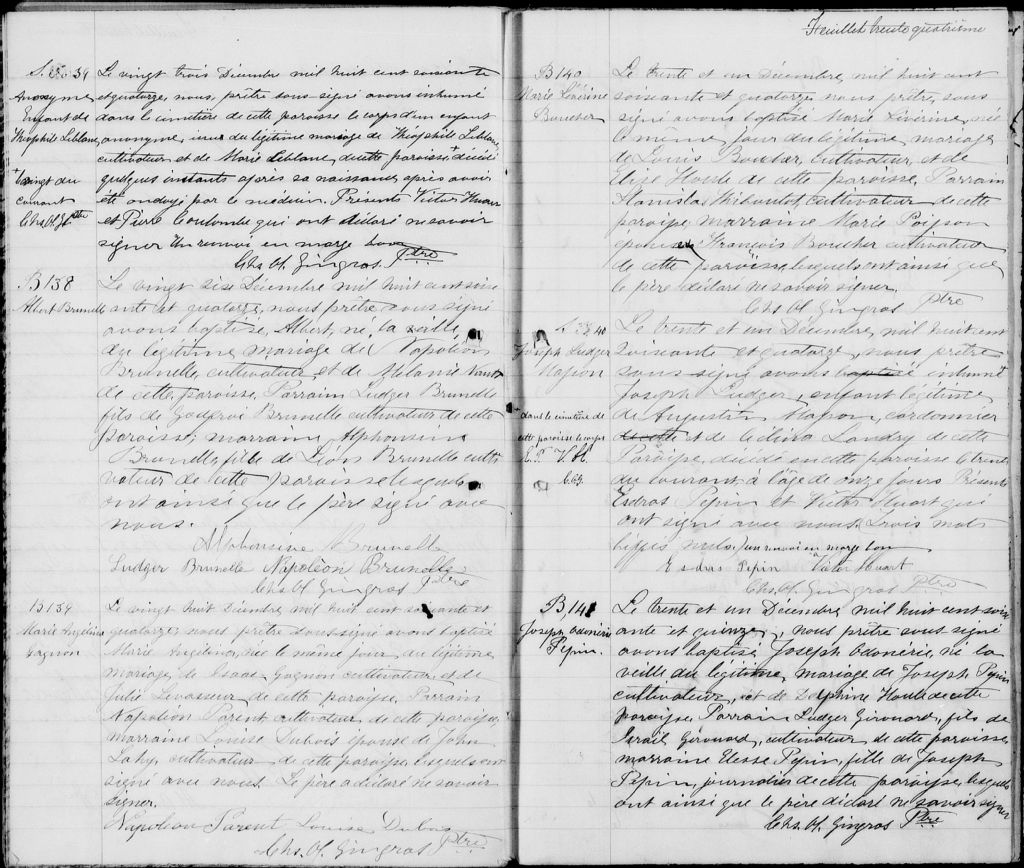 S. 39
Anonyme
Enfant de
Théophile Leblanc
+ vingt du
courant
Chs. O. G. Ptre
Le vingt trois Décembre mil huit cent soixante
et quatorze, nous, prêtre sous-signé avons inhumé
dans le cimetière de cette paroisse le corps d'un enfant
anonyme, issu du légitime mariage de Théophile Leblanc,
cultivateur et de Marie Leblanc, de cette paroisse + décédé
quelques instants après sa naissance, après avoir
été ondoyé par le médecin. Présents Victor Huart
et Pierre Coulombe qui ont déclaré ne savoir
signer Un renvoi en marge bon
Chs. O. Gingras Ptre
B 138
Albert Brunelle
Le vingt six Décembre mil huit cent soix
ante et quatorze, nous prêtre sous signé
avons baptisé, Albert, né la veille,
du légitime mariage de Napoléon
Brunelle, cultivateur et de Mélanie
de cette paroisse, Parrain Ludger Brunelle
fils de Godfroi Brunelle cultivateur de cette
paroisse; marraine, Alphonsine
Brunelle, fille de Léon Brunelle culti
vateur de cette paroisse lesquels
ont ainsi que le père signé avec
nous.
Alphonsine Brunelle
Ludger Brunelle Napoléon Brunelle
Chs. O. Gingras Ptre
B 139
Marie Angélina
Gagnon
Le vingt huit Décembre mil huit cent soixante et
quatorze, nous prêtre soussigné avons baptisé
Marie Angélina, née le même jour du légitime
mariage de Isaac Gagnon cultivateur et de
Julie Levasseur de cette paroisse, Parrain
Napoléon Parent cultivateur de cette paroisse,
marraine Louise Dubois épouse de John
Lahy, cultivateur de cette paroisse, lesquels ont
signé avec nous. Le père a déclaré ne savoir
signer.
Napoléon Parent Louise Dubois
Chs. O. Gingras Ptre
Feuillet trente quatrième
B 140
Marie Lévérine
Boucher
Le trente et un Décembre, mil huit cent
soixante et quatorze nous prêtre, sous
signé avons baptisé Marie Lévérine, née
le même jour du légitime mariage
de Louis Boucher, cultivateur, et de
Elize Houle de cette paroisse, Parrain
Stanislas Thibault, cultivateur de cette
paroisse, marraine Marie Poisson
épouse de François Boucher cultivateur
de cette paroisse, lesquels ont ainsi que
le père déclaré ne savoir signer.
Chs. O. Gingras Ptre
S. 40
Joseph Ludger
+ dans le cimetière de
cette paroisse le corps
E. P. V. H.
C.O.G.
Le trente et un Décembre, mil huit cent
soixante et quatorze, nous prêtre
sous signé avons baptisé inhumé +
Joseph Ludger, enfant légitime
de Augustin, cordonnier
de cette et de Célina Landry de cette
Paroisse, décédé en cette paroisse le trente
du courant à l'âge de onze jours Présents
Esdras Pepin et Victor Huart qui
ont signé avec nous. Trois mots
biffés nuls. un renvoi en marge bon
Esdras Pepin Victor Huart
Chs. O. Gingras Ptre
B 141
Joseph Odonérie
Pepin.
Le trente et un Décembre, mil huit cent soix
ante et quinze, nous prêtre sous signé
avons baptisé Joseph Odonérie, né la
veille du légitime, mariage de Joseph Pepin
cultivateur, et de Delphine Houle de cette
paroisse, Parrain Ludger Girouard, fils de
Israil Girouard, cultivateur de cette paroisse,
marraine Elesse Pepin, fille de Joseph
Pepin, journalier de cette paroisse, lesquels
ont ainsi que le père déclaré ne savoir signer
Chs. O. Gingras Ptre